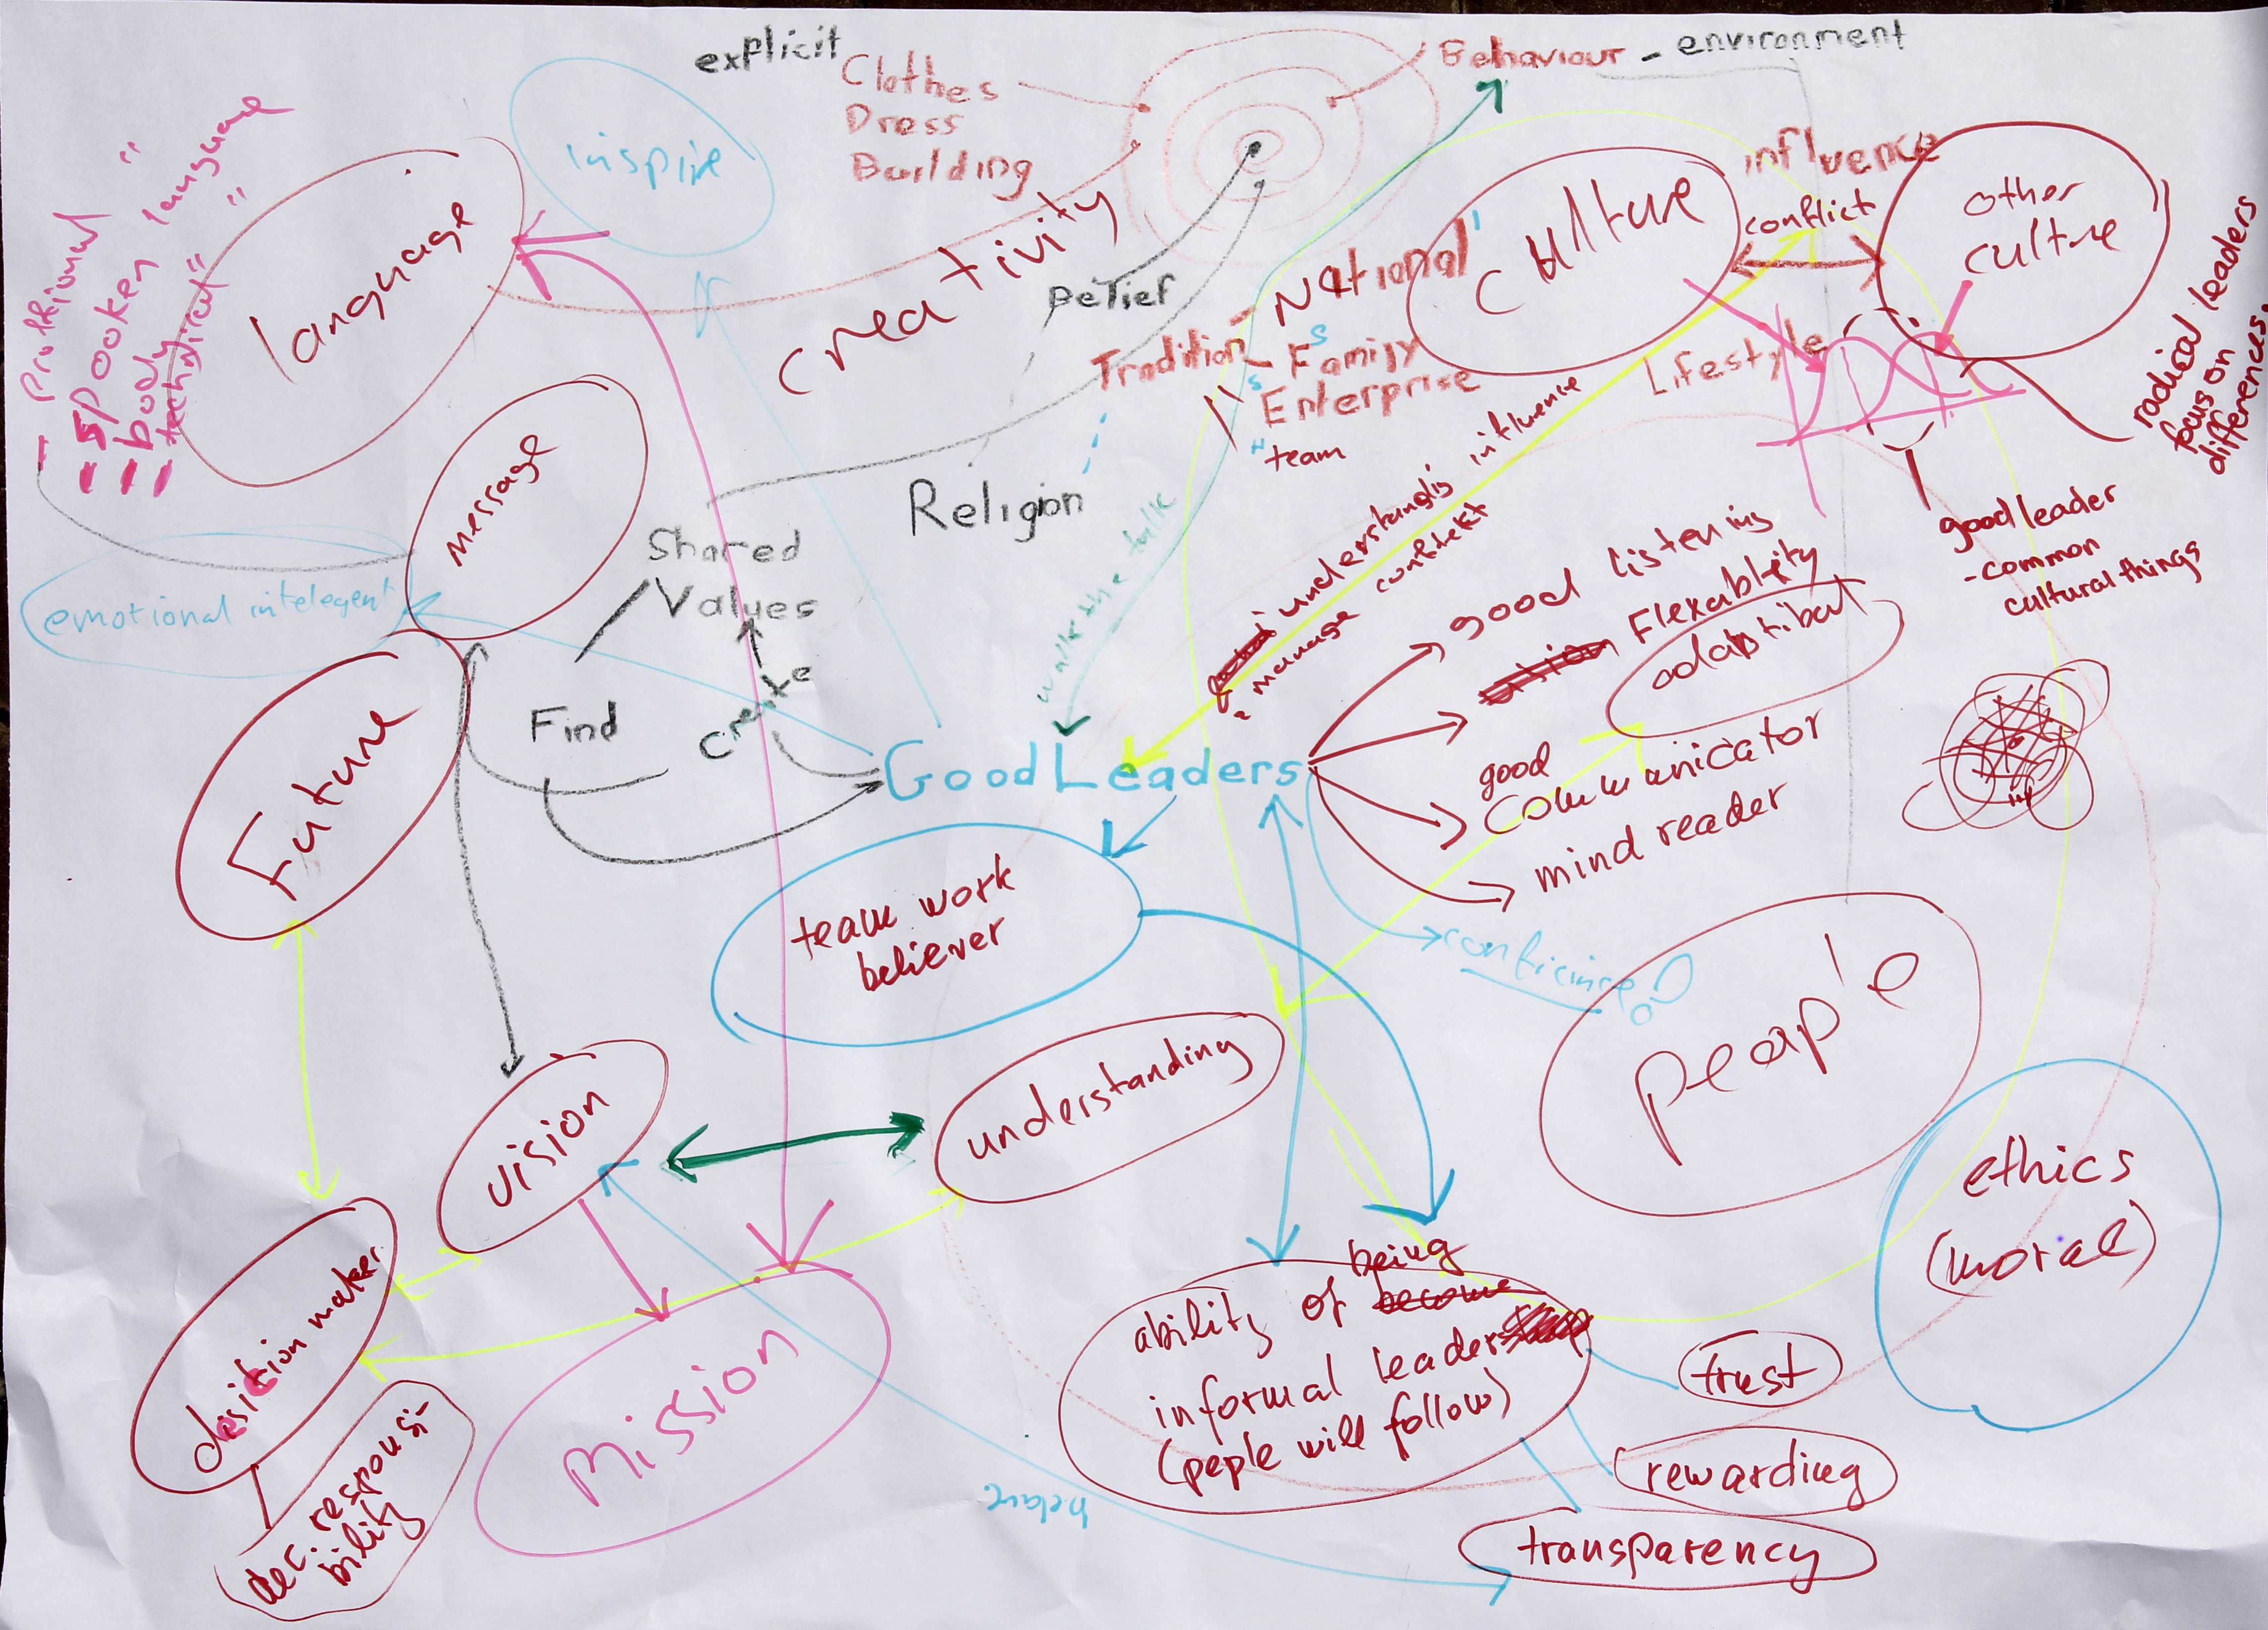 explicit
Clothes
Dress
Building
Behaviour - environment
inspire
language
- spoken language
- body "
creativity
belief
- National
Tradition - Family
Enterprise
" team
culture
influence
conflict
other
culture
Lifestyle
radical leaders
focus on
differences.
good leader
- common
cultural things
message
emotional intelegent
Shared
Values
Religion
walk the talk
understands influence
manage
Find
Create
Future
Good Leaders
good listening
Flexablity
good
communicator
mind reader
team work
believer
people
ethics
(moral)
vision
understanding
Mission
maker
dec. responsi-
bility
ability of being
become
informal leader
(peple will follow)
trust
rewarding
transparency